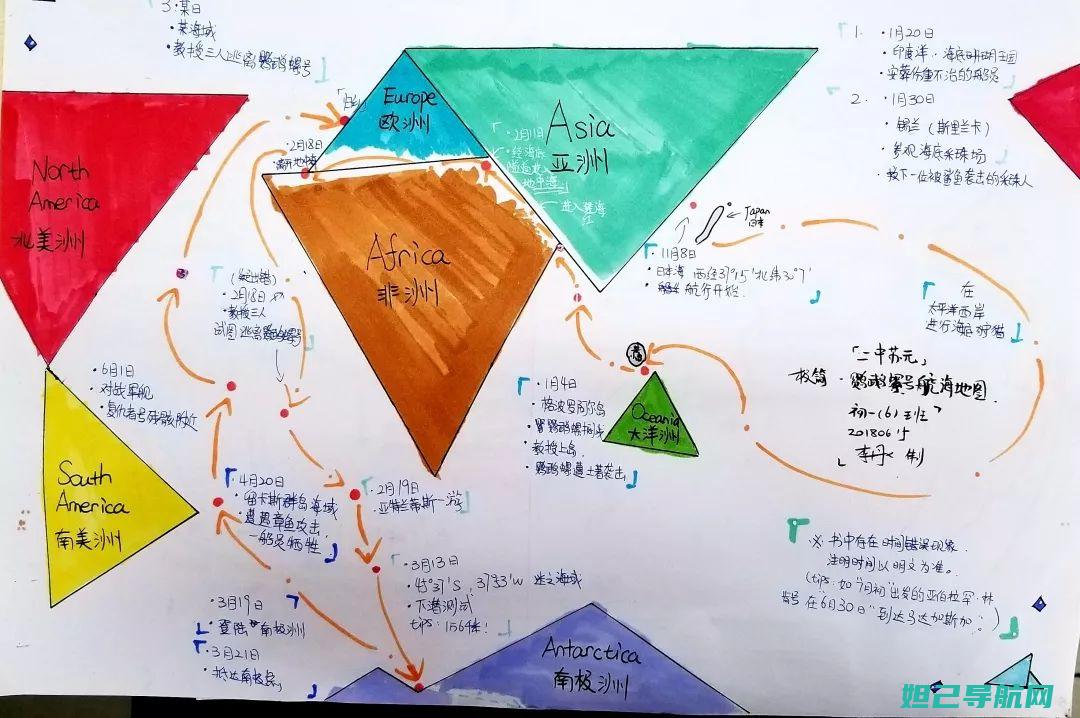 3.某日
·某海域
·教授三人逃离鹦鹉螺号
1. ·1月20日
·印度洋·海底珊瑚王国
·安葬伤重不治的船员
2. ·1月30日
·锡兰（斯里兰卡）
·参观海底采珠场
·救下一位被鲨鱼袭击的采珠人
Europe
欧洲
Asia
亚洲
North
America
北美洲
Africa
非洲
·2月18日
·离开地中海
·2月11日
·经海底
隧道进入
地中海
进入
Japan
日本
·11月8日
·日本海 西经37°15′北纬30°7′
航行开始
在
太平洋西岸
进行海底狩猎
·2月18日
·教授三人
试图逃离鹦鹉螺号
「二中苏元」
校简·鹦鹉螺号航海地图
初一(6)班
20180615
李丹 制
·6月1日
·对战军舰
·复仇者号残骸附近
·1月4日
·格波罗阿尔岛
·鹦鹉螺搁浅
·教授上岛
·鹦鹉螺遭土著袭击
Oceania
大洋洲
South
America
南美洲
·4月20日
·留卡斯群岛海域
·遭遇章鱼攻击
一船员牺牲
·2月19日
·亚特兰蒂斯一游
·3月13日
·45°37′S，37°33′W
·下潜测试
tips:
·3月19日
·登陆南极洲
·3月21日
·抵达南极点
※ 书中存在时间错误现象
注明时间以明文为准。
(tips:如“7月初”出发的亚伯拉罕·林
肯号 在“6月30日”到达马达加斯加。)
Antarctica
南极洲
妲己导航网